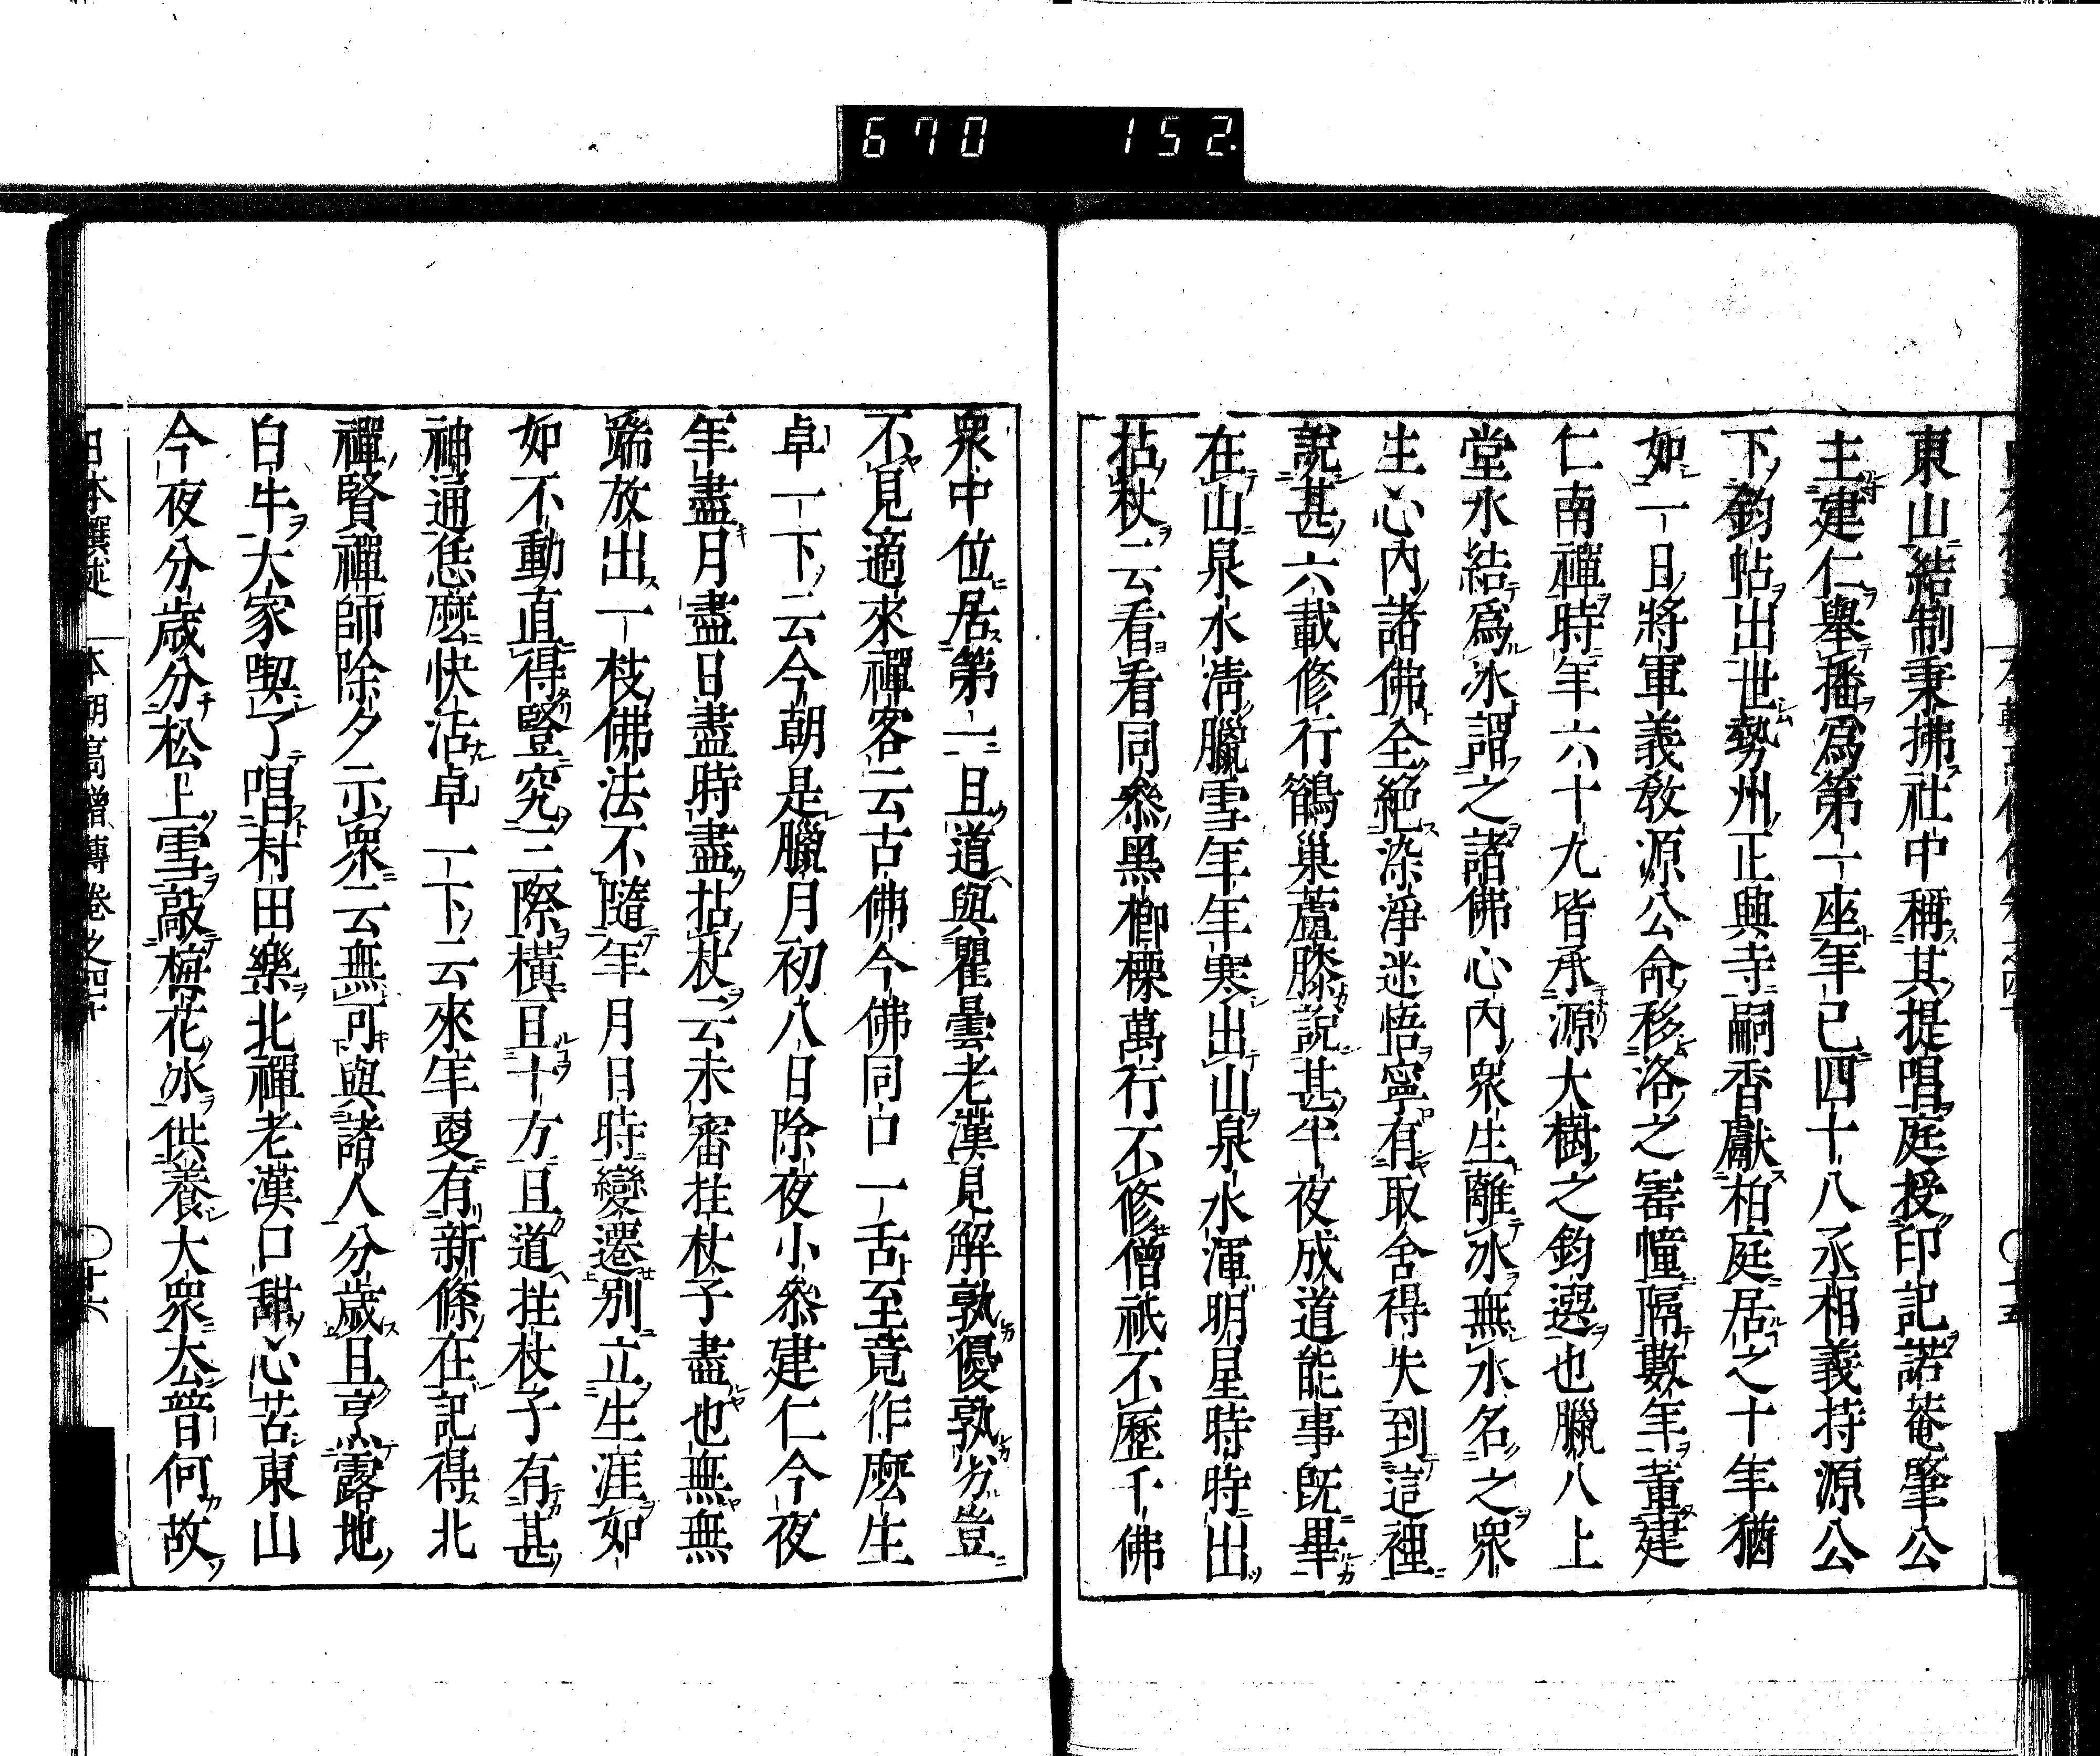 670 152
東山結制秉拂社中稱其提唱庭授印記諾菴肇公
主建仁擧播爲第一座年已四十八丞相義持源公
下鈞帖出世勢州正興寺嗣香獻柏庭居之十年猶
如一日將軍義敎源公命移洛之畱幢隔數年董建
仁南禪時年六十九皆承源大樹之鈞選也臘八上
堂水結爲冰謂之諸佛心內衆生離冰無水名之衆
生心內諸佛全絕染淨迷悟寧有取舍得失到這裡
說甚六載修行鶴巢蘆膝說甚半夜成道能事既畢
在山泉水淸臘雪年年寒出山泉水渾明星時時出
拈杖云看看同參黑楖檪萬行不修僧祇不歷千佛
衆中位居第一且道與瞿曇老漢見解孰優孰劣豈
不見適來禪客云古佛今佛同口一舌至竟作麽生
卓一下云今朝是臘月初八日除夜小參建仁今夜
年盡月盡日盡時盡拈杖云未審拄杖子盡也無無
端放出一枝佛法不隨年月日時變遷別立生涯如
如不動直得豎究三際橫亘十方且道拄杖子有甚
神通恁麽快活卓一下云來年更有新條在記得北
禪賢禪師除夕示衆云無可與諸人分歲且烹露地
白牛大家喫了唱村田樂北禪老漢口甜心苦東山
今夜分歲分松上雪敲梅花冰供養大衆太公普何故
日本撰述 本朝高僧傳卷之四十 〇十六